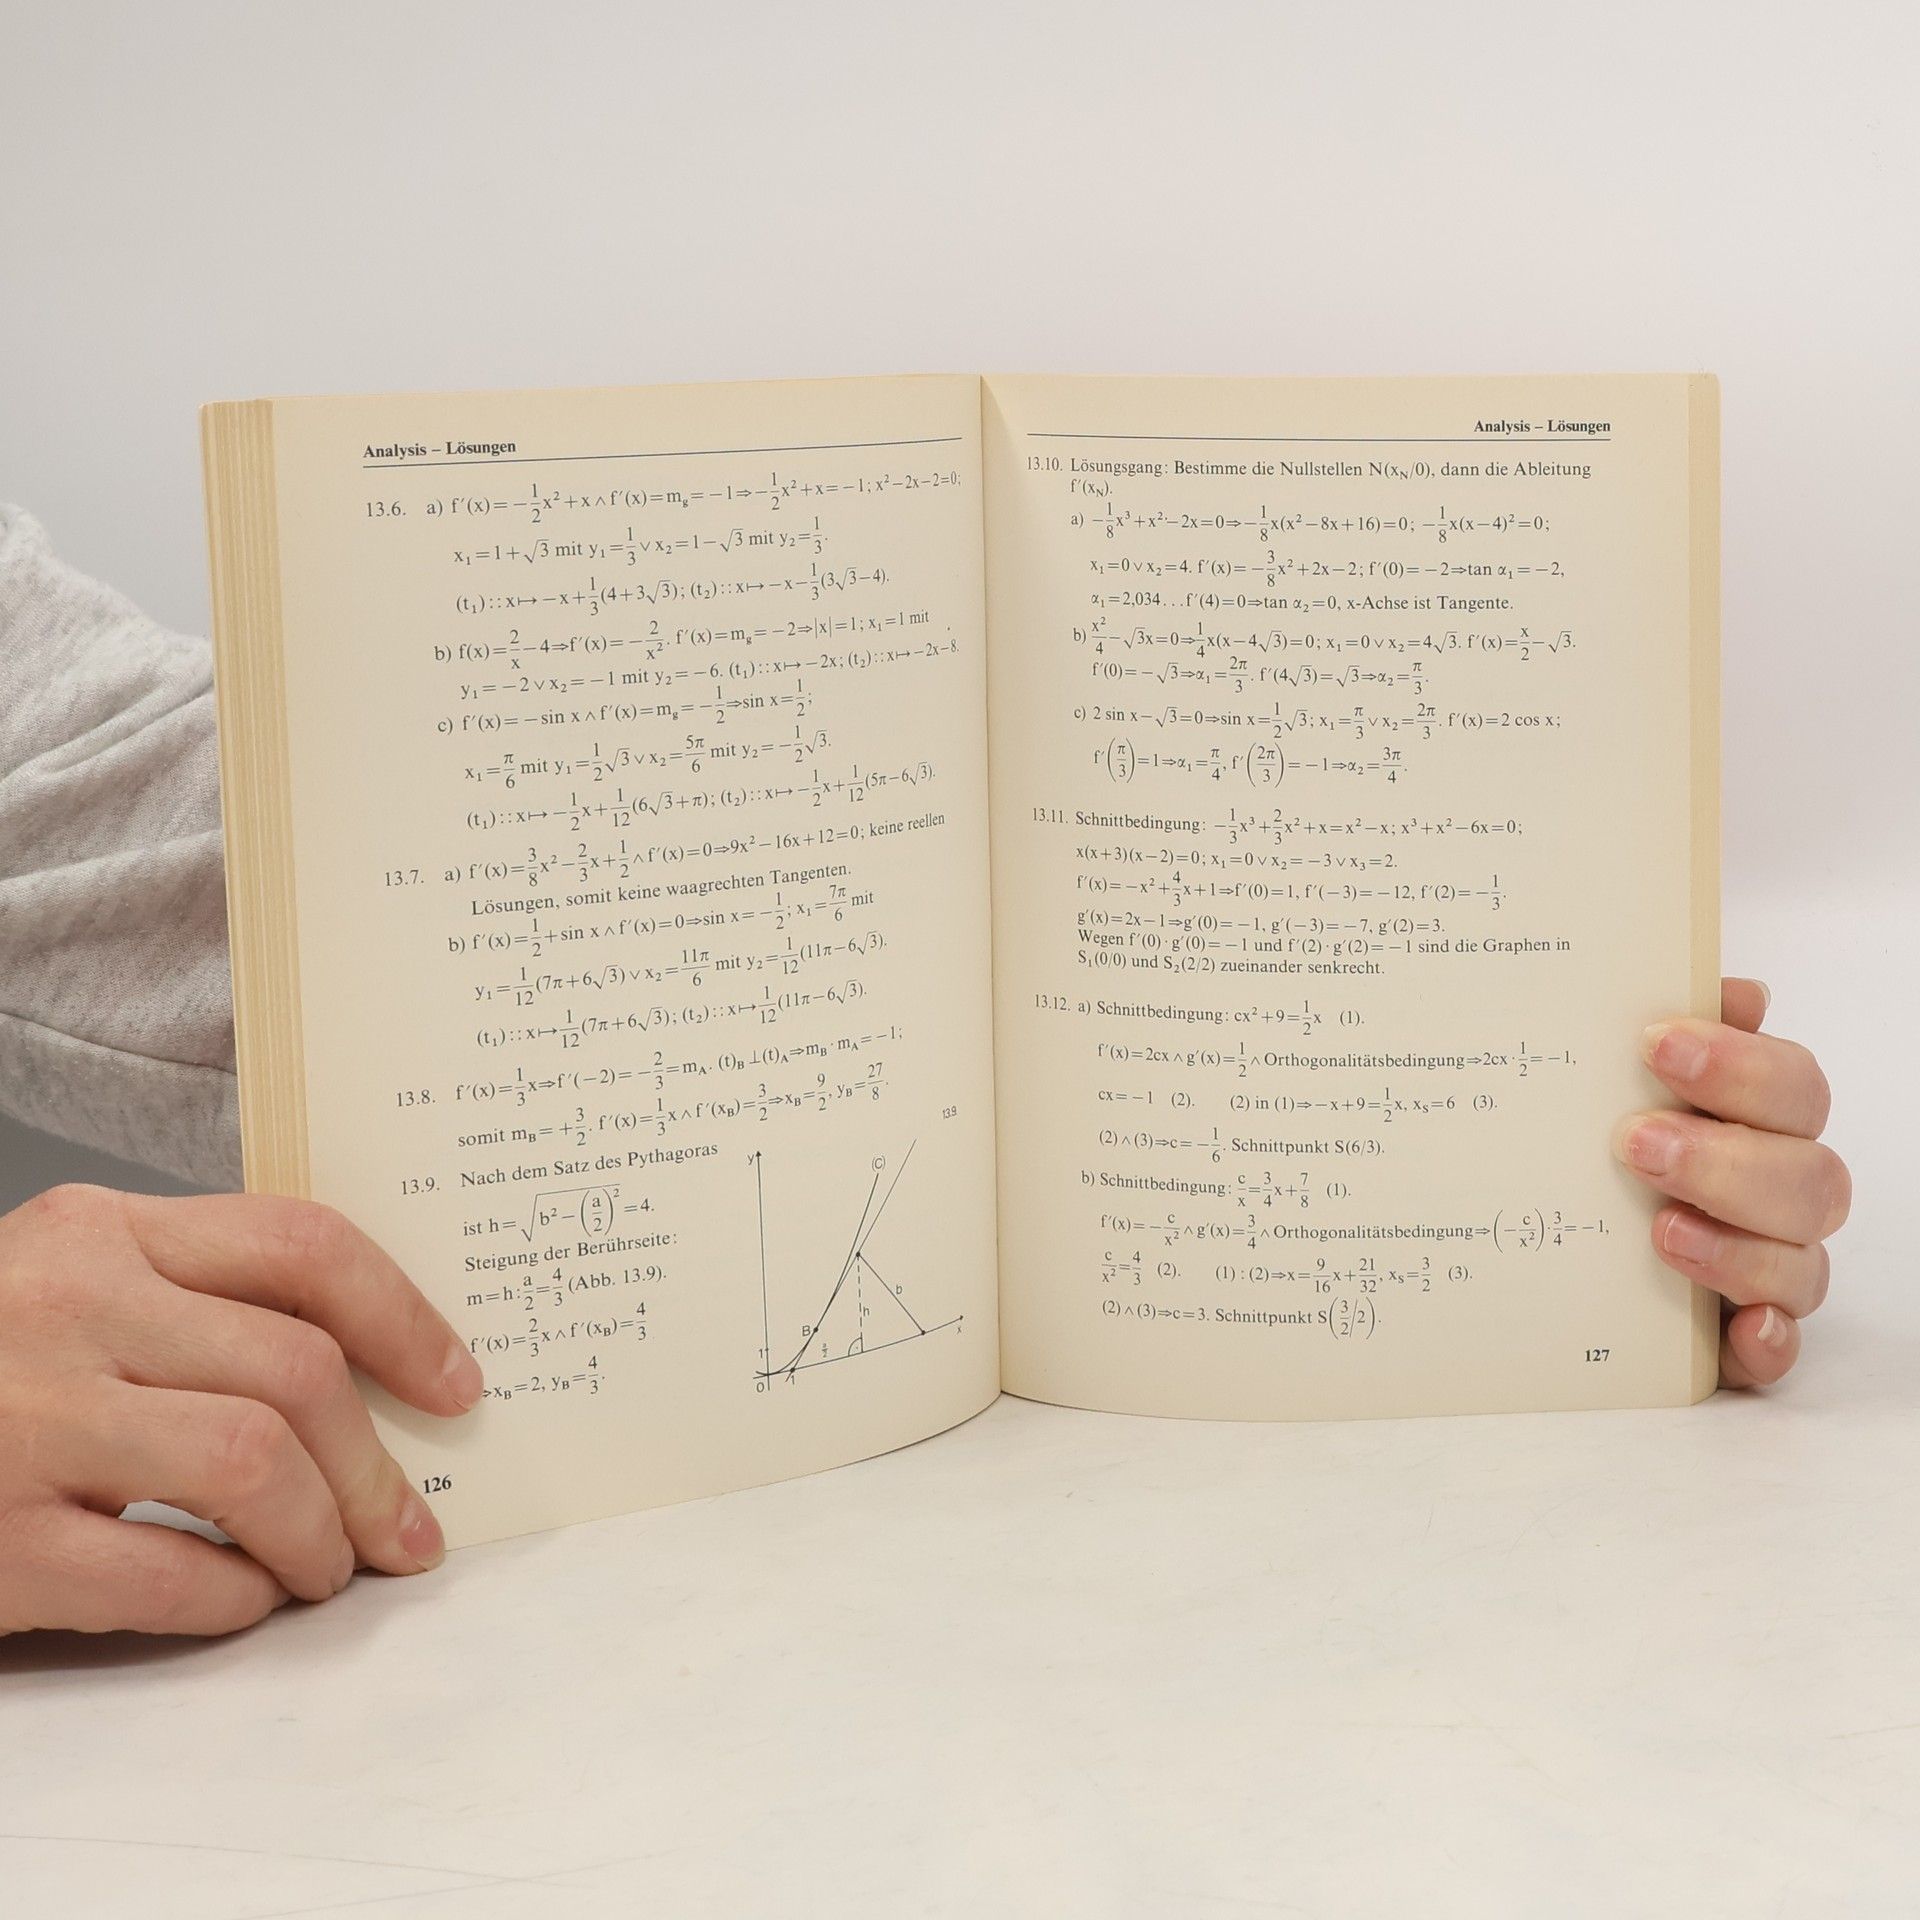 Analysis – Lösungen
13.6. a) f′(x)=−1/2x²+x∧f′(x)=m_g=−1⇒−1/2x²+x=−1; x²−2x−2=0;
x₁=1+√3 mit y₁=1/3∨x₂=1−√3 mit y₂=1/3.
(t₁)::x↦−x+1/3(4+3√3); (t₂)::x↦−x−1/3(3√3−4).
b) f(x)=2/x−4⇒f′(x)=−2/x². f′(x)=m_g=−2⇒|x|=1; x₁=1 mit
y₁=−2∨x₂=−1 mit y₂=−6. (t₁)::x↦−2x; (t₂)::x↦−2x−8.
c) f′(x)=−sin x∧f′(x)=m_g=−1/2⇒sin x=1/2;
x₁=π/6 mit y₁=1/2√3∨x₂=5π/6 mit y₂=−1/2√3.
(t₁)::x↦−1/2x+1/12(6√3+π); (t₂)::x↦−1/2x+1/12(5π−6√3).
13.7. a) f′(x)=3/8x²−2/3x+1/2∧f′(x)=0⇒9x²−16x+12=0; keine reellen
Lösungen, somit keine waagrechten Tangenten.
b) f′(x)=1/2+sin x∧f′(x)=0⇒sin x=−1/2; x₁=7π/6 mit
y₁=1/12(7π+6√3)∨x₂=11π/6 mit y₂=1/12(11π−6√3).
(t₁)::x↦1/12(7π+6√3); (t₂)::x↦1/12(11π−6√3).
13.8. f′(x)=1/3x⇒f′(−2)=−2/3=m_A. (t)_B⊥(t)_A⇒m_B·m_A=−1;
somit m_B=+3/2. f′(x)=1/3x∧f′(x_B)=3/2⇒x_B=9/2, y_B=27/8.
13.9. Nach dem Satz des Pythagoras
ist h=√(b²−(a/2)²)=4.
Steigung der Berührseite:
m=h:a/2=4/3 (Abb. 13.9).
f′(x)=2/3x∧f′(x_B)=4/3
⇒x_B=2, y_B=4/3.
13.9
y
(C)
b
h
B
a/2
x
1
0
1
126
Analysis – Lösungen
13.10. Lösungsgang: Bestimme die Nullstellen N(x_N/0), dann die Ableitung
f′(x_N).
a) −1/8x³+x²−2x=0⇒−1/8x(x²−8x+16)=0; −1/8x(x−4)²=0;
x₁=0∨x₂=4. f′(x)=−3/8x²+2x−2; f′(0)=−2⇒tan α₁=−2,
α₁=2,034...f′(4)=0⇒tan α₂=0, x-Achse ist Tangente.
b) x²/4−√3x=0⇒1/4x(x−4√3)=0; x₁=0∨x₂=4√3. f′(x)=x/2−√3.
f′(0)=−√3⇒α₁=2π/3. f′(4√3)=√3⇒α₂=π/3.
c) 2 sin x−√3=0⇒sin x=1/2√3; x₁=π/3∨x₂=2π/3. f′(x)=2 cos x;
f′(π/3)=1⇒α₁=π/4, f′(2π/3)=−1⇒α₂=3π/4.
13.11. Schnittbedingung: −1/3x³+2/3x²+x=x²−x; x³+x²−6x=0;
x(x+3)(x−2)=0; x₁=0∨x₂=−3∨x₃=2.
f′(x)=−x²+4/3x+1⇒f′(0)=1, f′(−3)=−12, f′(2)=−1/3.
g′(x)=2x−1⇒g′(0)=−1, g′(−3)=−7, g′(2)=3.
Wegen f′(0)·g′(0)=−1 und f′(2)·g′(2)=−1 sind die Graphen in
S₁(0/0) und S₂(2/2) zueinander senkrecht.
13.12. a) Schnittbedingung: cx²+9=1/2x (1).
f′(x)=2cx∧g′(x)=1/2∧Orthogonalitätsbedingung⇒2cx·1/2=−1,
cx=−1 (2). (2) in (1)⇒−x+9=1/2x, x_S=6 (3).
(2)∧(3)⇒c=−1/6. Schnittpunkt S(6/3).
b) Schnittbedingung: c/x=3/4x+7/8 (1).
f′(x)=−c/x²∧g′(x)=3/4∧Orthogonalitätsbedingung⇒(−c/x²)·3/4=−1,
c/x²=4/3 (2). (1):(2)⇒x=9/16x+21/32, x_S=3/2 (3).
(2)∧(3)⇒c=3. Schnittpunkt S(3/2/2).
127